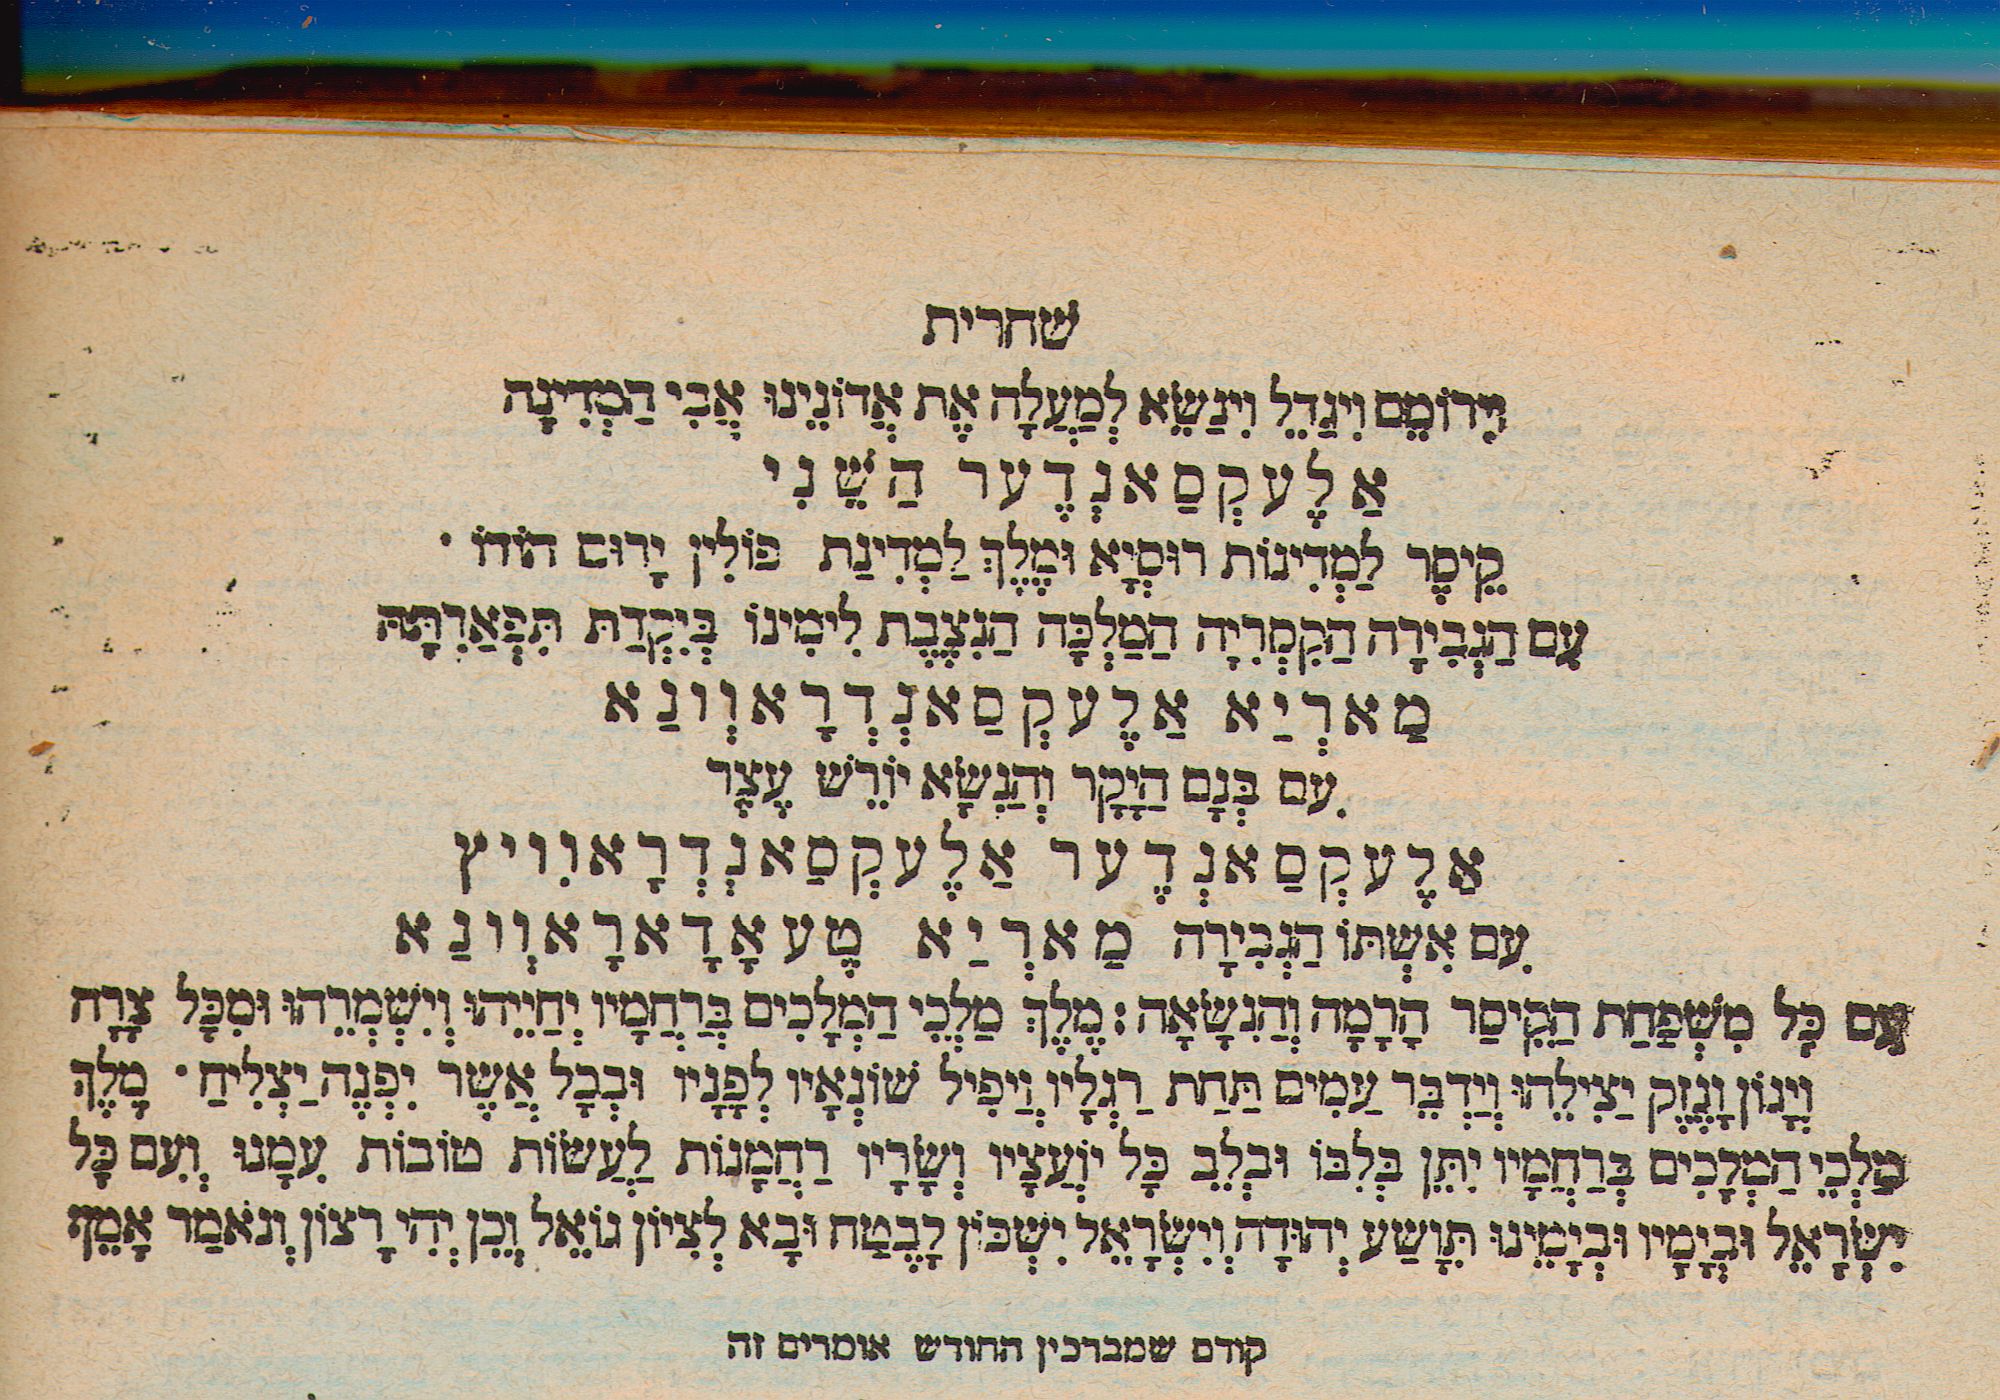 שחרית
וִירוֹמֵם וִיגַדֵל וִינַשֵׂא לְמַעֲלָה אֶת אֲדוֹנֵינוּ אֲבִי הַמְדִינָה
אַלֶעקְסַאנְדֶער הַשֵׁנִי
קֵיסֶר לַמְדִינוֹת רוּסְיָא וּמֶלֶךְ לַמְדִינַת פּוֹלִין יָרוּם הוֹדוֹ ·
עִם הַגְבִירָה הַקִסְרִיָה הַמַלְכָּה הַנִצֶבֶת לִימִינוֹ בְּיִקְדַת תִּפְאַרְתָּהּ
מַארְיַא אַלֶעקְסַאנְדְרָאוְונַא
עִם בְּנָם הַיָקָר וְהַנִשָׂא יוֹרֵשׁ עֶצֶר
אַלֶעקְסַאנְדֶער אַלֶעקְסַאנְדְרָאוִויץ
עִם אִשְׁתּוֹ הַגְבִירָה מַארְיַא טֶעאָדָארָאוְונַא
עִם כָּל מִשְׁפַּחַת הַקֵיסַר הָרָמָה וְהַנִשָׂאָה : מֶלֶךְ מַלְכֵי הַמְלָכִים בְּרַחֲמָיו יְחַיֵיהוּ וְיִשְׁמְרֵהוּ וּמִכָּל צָרָה
וְיָגוֹן וָנֶזֶק יַצִילֵהוּ וְיַדְבֵּר עַמִים תַּחַת רַגְלָיו וְיַפִּיל שׂוֹנְאָיו לְפָנָיו וּבְכָל אֲשֶׁר יִפְנֶה יַצְלִיחַ · מֶלֶךְ
מַלְכֵי הַמְלָכִים בְּרַחֲמָיו יִתֵּן בְּלִבּוֹ וּבְלֵב כָּל יוֹעֲצָיו וְשָׂרָיו רַחֲמָנוּת לַעֲשׂוֹת טוֹבוֹת עִמָנוּ וְעִם כָּל
יִשְׂרָאֵל וּבְיָמָיו וּבְיָמֵינוּ תִּוָשַׁע יְהוּדָה וְיִשְׂרָאֵל יִשְׁכּוֹן לָבֶטַח וּבָא לְצִיוֹן גוֹאֵל וְכֵן יְהִי רָצוֹן וְנֹאמַר אָמֵן׃
קודם שמברכין החודש אומרים זה